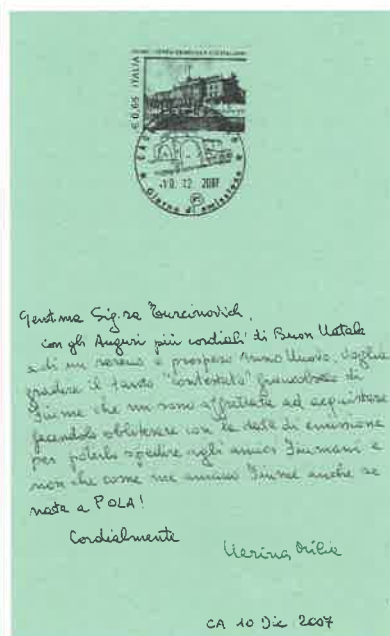 € 0,65 ITALIA
10. 12. 2007
Giorno di emissione
Gent.ma Sig.ra Turcinovich,
con gli Auguri più cordiali di Buon Natale
e di un sereno e prospero anno Nuovo. Voglia
gradire il tanto "contestato" francobollo di
Fiume che mi sono affrettata ad acquistare
facendolo obliterare con la data di emissione
per poterlo spedire agli amici Fiumani e
non che come me amano Fiume anche se
nata a POLA!
Cordialmente
Nerina
CA 10 Dic 2007